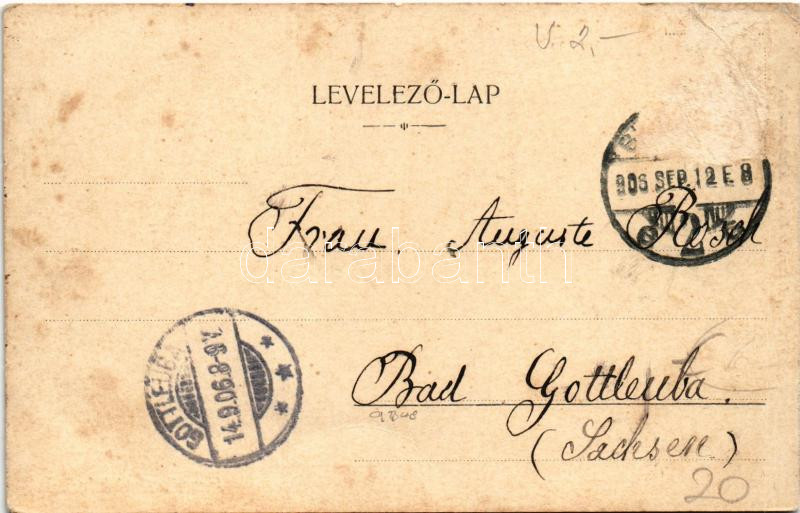 V. 2,-
LEVELEZŐ-LAP
906 SEP. 12 E. 8
Frau. Auguste Rosch
darabanth
GOTTLEUBA
14.9.06.8-9V.
Bad Gottleuba.
(Sachsen.)
20